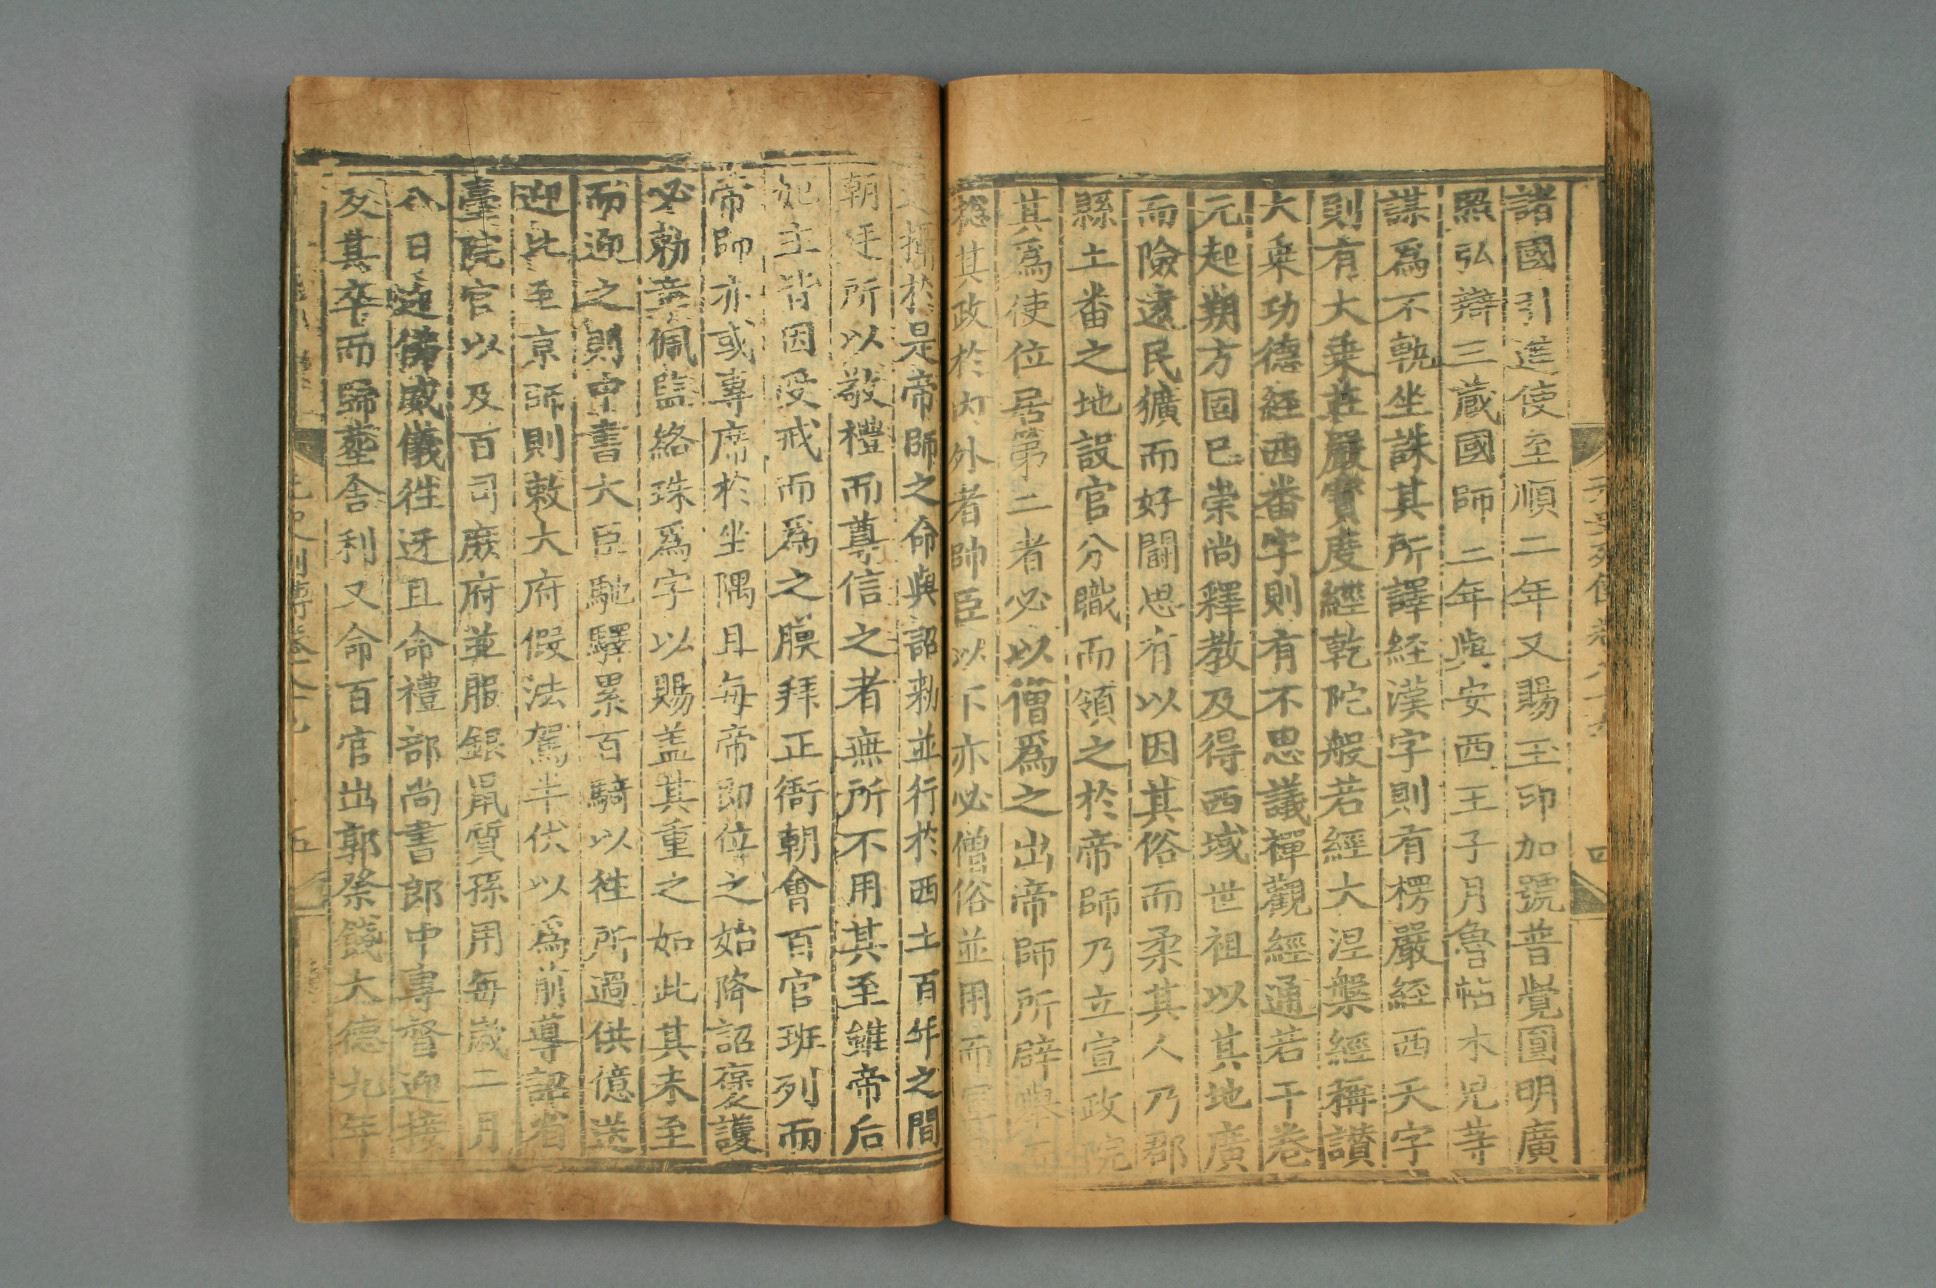 諸國引進使至順二年又賜玉印加號普覺圓明廣
照弘辯三藏國師二年與安西王子月魯帖木兒等
謀爲不軌坐誅其所譯經漢字則有楞嚴經西天字
則有大乗莊嚴寳度經乾陀般若經大涅槃經稱讃
大乗功德經西番字則有不思議禪觀經通若干卷
元起朔方固已崇尚釋教及得西域世祖以其地廣
而險遠民獷而好鬪思有以因其俗而柔其人乃郡
縣土番之地設官分職而領之於帝師乃立宣政院
其爲使位居第二者必以僧爲之出帝師所辟舉
總其政於内外者帥臣以下亦必僧俗並用而軍
於是帝師之命與詔勑並行於西土百年之間
朝廷所以敬禮而尊信之者無所不用其至雖帝后
妃主皆因受戒而爲之膜拜正衙朝會百官班列而
帝師亦或專席於坐隅且每帝即位之始降詔褒護
必勑章佩監絡珠爲字以賜盖其重之如此其未至
而迎之則中書大臣馳驛累百騎以徃所過供億送
迎比至京師則敕大府假法駕半仗以爲前導詔省
臺院官以及百司庶府並服銀鼠質孫用每歲二月
八日迎佛威儀徃迓且命禮部尚書郎中專督迎接
及其卒而歸塟舎利又命百官出郭祭餞大德九年